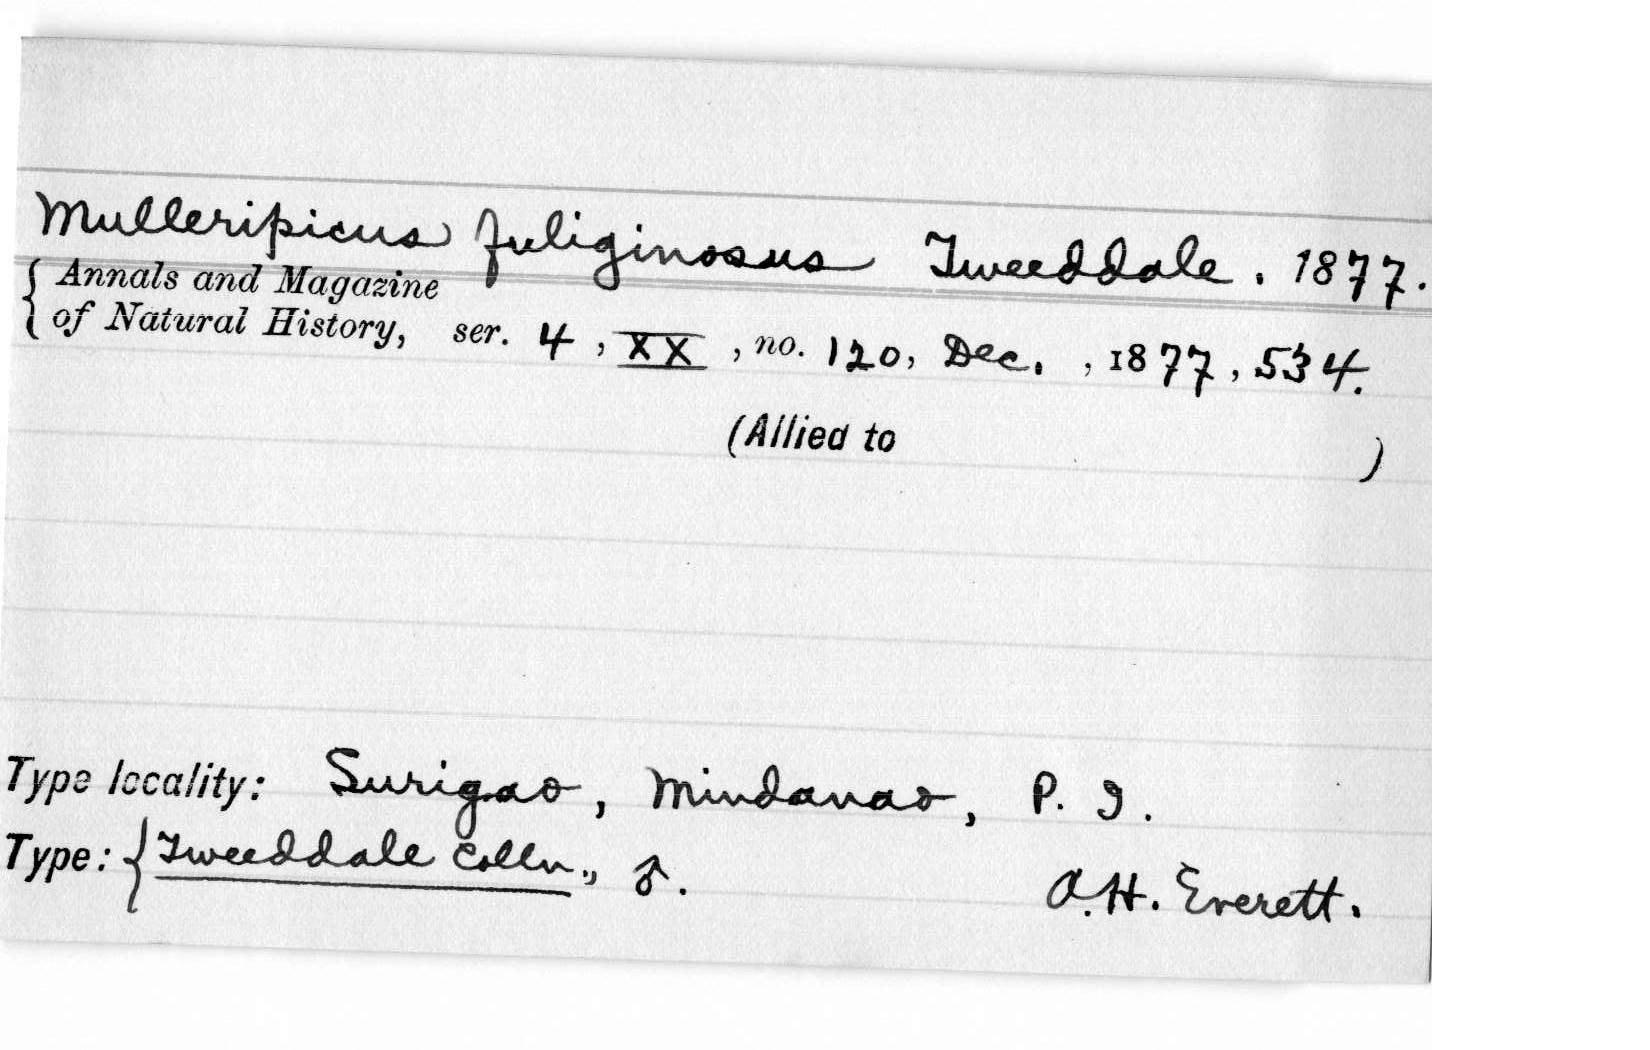 Mulleripicus fuliginosus Tweeddale. 1877.
{ Annals and Magazine
of Natural History, ser. 4, XX, no. 120, Dec., 1877, 534.
(Allied to )
Type locality: Surigao, Mindanao, P. I.
Type: { Tweeddale Colln., ♂. A.H. Everett.